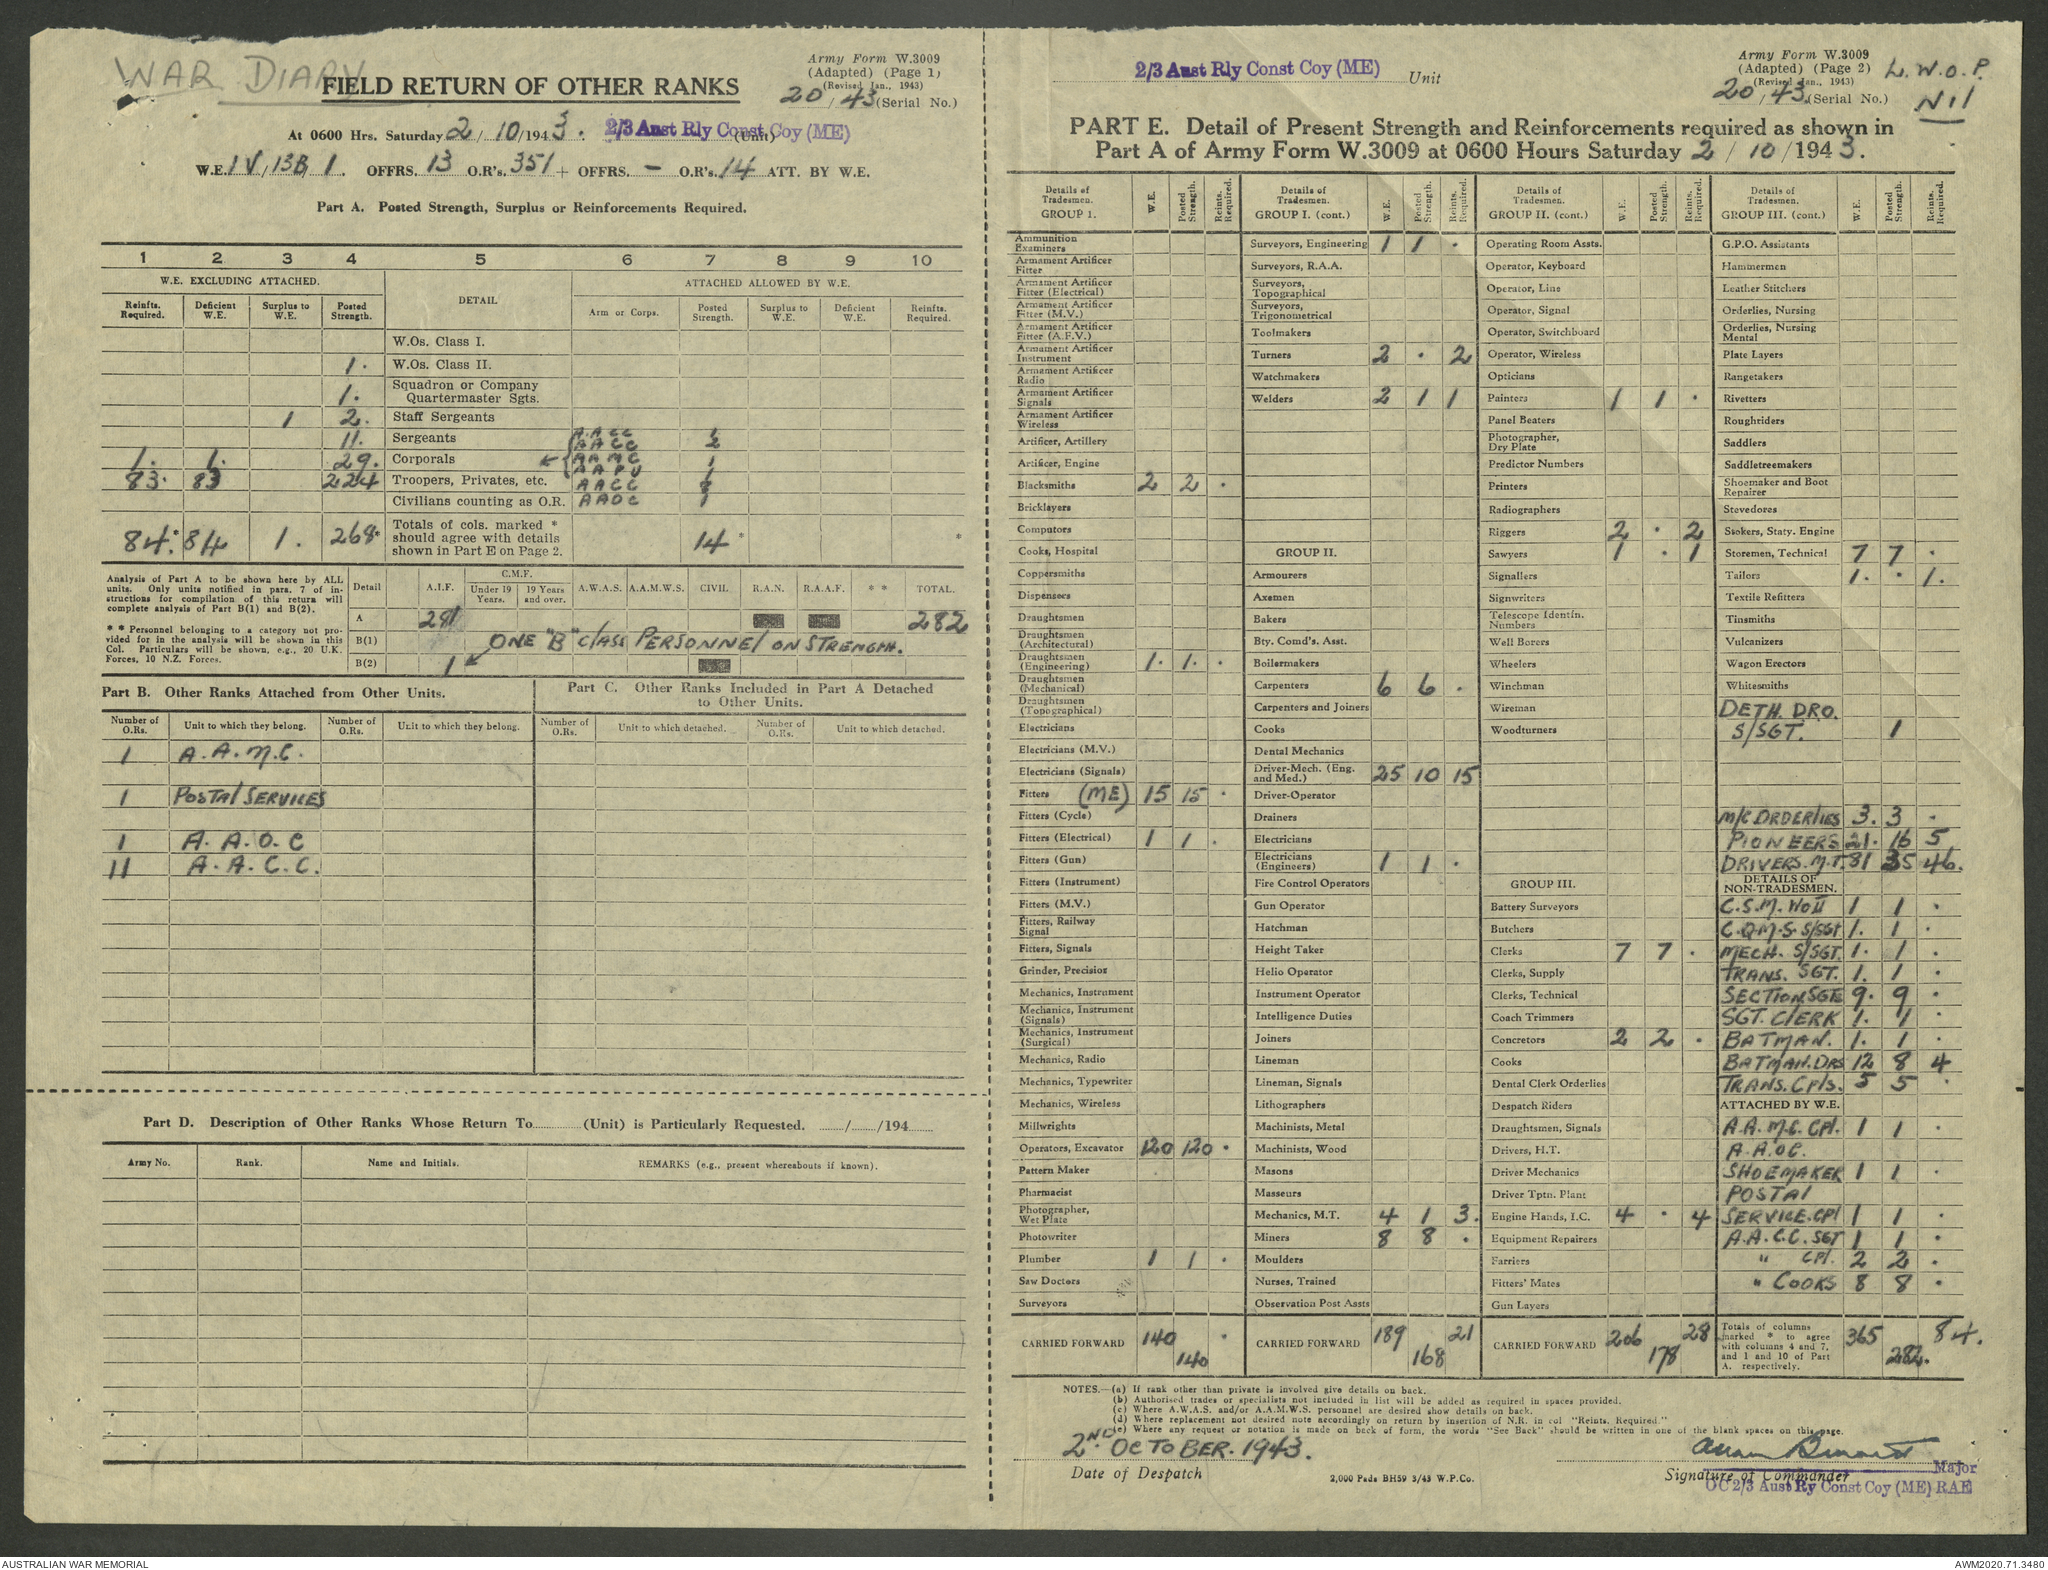 WAR DIARY
Army Form W.3009
(Adapted) (Page 1)
(Revised Jan., 1943)
20 / 43 (Serial No.)
FIELD RETURN OF OTHER RANKS
At 0600 Hrs. Saturday 2 / 10 /1943. 2/3 Aust Rly Const Coy (ME) (Unit)
W.E. IV/13B/1. OFFRS. 13 O.R's. 351 + OFFRS. — O.R's. 14 ATT. BY W.E.
Part A. Posted Strength, Surplus or Reinforcements Required.
1 2 3 4 5 6 7 8 9 10
W.E. EXCLUDING ATTACHED. DETAIL ATTACHED ALLOWED BY W.E.
Reinfts. Required. Deficient W.E. Surplus to W.E. Posted Strength. Arm or Corps. Posted Strength. Surplus to W.E. Deficient W.E. Reinfts. Required.
W.Os. Class I.
1. W.Os. Class II.
1. Squadron or Company Quartermaster Sgts.
1 2. Staff Sergeants
11. Sergeants A.A.C.C. 1
AACC 2
1. 1. 29. Corporals AAMC 1
AAPU 1
83. 83 224 Troopers, Privates, etc. AACC 8
Civilians counting as O.R. AAOC 1
84.* 84 1. 268* Totals of cols. marked * should agree with details shown in Part E on Page 2. 14 * *
Analysis of Part A to be shown here by ALL units. Only units notified in para. 7 of instructions for compilation of this return will complete analysis of Part B(1) and B(2).
* * Personnel belonging to a category not provided for in the analysis will be shown in this Col. Particulars will be shown, e.g., 20 U.K. Forces, 10 N.Z. Forces.
Detail A.I.F. C.M.F. Under 19 Years. 19 Years and over. A.W.A.S. A.A.M.W.S. CIVIL R.A.N. R.A.A.F. * * TOTAL.
A 281 282
B(1) ONE "B" Class PERSONNEL ON STRENGTH.
B(2) 1
Part B. Other Ranks Attached from Other Units.
Part C. Other Ranks Included in Part A Detached to Other Units.
Number of O.Rs. Unit to which they belong. Number of O.Rs. Unit to which they belong. Number of O.Rs. Unit to which detached. Number of O.Rs. Unit to which detached.
1 A.A.M.C.
1 POSTAL SERVICES
1 A.A.O.C
11 A.A.C.C.
Part D. Description of Other Ranks Whose Return To (Unit) is Particularly Requested. / /194
Army No. Rank. Name and Initials. REMARKS (e.g., present whereabouts if known).
2/3 Aust Rly Const Coy (ME) Unit
Army Form W.3009
(Adapted) (Page 2)
(Revised Jan., 1943)
20 / 43 (Serial No.)
L.W.O.P.
Nil
PART E. Detail of Present Strength and Reinforcements required as shown in
Part A of Army Form W.3009 at 0600 Hours Saturday 2 / 10 /1943.
Details of Tradesmen. GROUP 1. W.E. Posted Strength. Reints. Required.
Ammunition Examiners
Armament Artificer Fitter
Armament Artificer Fitter (Electrical)
Armament Artificer Fitter (M.V.)
Armament Artificer Fitter (A.F.V.)
Armament Artificer Instrument
Armament Artificer Radio
Armament Artificer Signals
Armament Artificer Wireless
Artificer, Artillery
Artificer, Engine
Blacksmiths 2 2 .
Bricklayers
Computors
Cooks, Hospital
Coppersmiths
Dispensers
Draughtsmen
Draughtsmen (Architectural)
Draughtsmen (Engineering) 1. 1. .
Draughtsmen (Mechanical)
Draughtsmen (Topographical)
Electricians
Electricians (M.V.)
Electricians (Signals)
Fitters (ME) 15 15 .
Fitters (Cycle)
Fitters (Electrical) 1 1 .
Fitters (Gun)
Fitters (Instrument)
Fitters (M.V.)
Fitters, Railway Signal
Fitters, Signals
Grinder, Precision
Mechanics, Instrument
Mechanics, Instrument (Signals)
Mechanics, Instrument (Surgical)
Mechanics, Radio
Mechanics, Typewriter
Mechanics, Wireless
Millwrights
Operators, Excavator 120 120 .
Pattern Maker
Pharmacist
Photographer, Wet Plate
Photowriter
Plumber 1 1 .
Saw Doctors
Surveyors
CARRIED FORWARD 140 140 .
Details of Tradesmen. GROUP I. (cont.) W.E. Posted Strength. Reints. Required.
Surveyors, Engineering 1 1 .
Surveyors, R.A.A.
Surveyors, Topographical
Surveyors, Trigonometrical
Toolmakers
Turners 2 . 2
Watchmakers
Welders 2 1 1
GROUP II.
Armourers
Axemen
Bakers
Bty. Comd's. Asst.
Boilermakers
Carpenters 6 6 .
Carpenters and Joiners
Cooks
Dental Mechanics
Driver-Mech. (Eng. and Med.) 25 10 15
Driver-Operator
Drainers
Electricians
Electricians (Engineers) 1 1 .
Fire Control Operators
Gun Operator
Hatchman
Height Taker
Helio Operator
Instrument Operator
Intelligence Duties
Joiners
Lineman
Lineman, Signals
Lithographers
Machinists, Metal
Machinists, Wood
Masons
Masseurs
Mechanics, M.T. 4 1 3.
Miners 8 8 .
Moulders
Nurses, Trained
Observation Post Assts
CARRIED FORWARD 189 168 21
Details of Tradesmen. GROUP II. (cont.) W.E. Posted Strength. Reints. Required.
Operating Room Assts.
Operator, Keyboard
Operator, Line
Operator, Signal
Operator, Switchboard
Operator, Wireless
Opticians
Painters 1 1 .
Panel Beaters
Photographer, Dry Plate
Predictor Numbers
Printers
Radiographers
Riggers 2 . 2
Sawyers 1 . 1
Signallers
Signwriters
Telescope Identifn. Numbers
Well Borers
Wheelers
Winchman
Wireman
Woodturners
GROUP III.
Battery Surveyors
Butchers
Clerks 7 7 .
Clerks, Supply
Clerks, Technical
Coach Trimmers
Concretors 2 2 .
Cooks
Dental Clerk Orderlies
Despatch Riders
Draughtsmen, Signals
Drivers, H.T.
Driver Mechanics
Driver Tptn. Plant
Engine Hands, I.C. 4 . 4
Equipment Repairers
Farriers
Fitters' Mates
Gun Layers
CARRIED FORWARD 206 178 28
Details of Tradesmen. GROUP III. (cont.) W.E. Posted Strength. Reints. Required.
G.P.O. Assistants
Hammermen
Leather Stitchers
Orderlies, Nursing
Orderlies, Nursing Mental
Plate Layers
Rangetakers
Rivetters
Roughriders
Saddlers
Saddletreemakers
Shoemaker and Boot Repairer
Stevedores
Stokers, Staty. Engine
Storemen, Technical 7 7 .
Tailors 1. . 1.
Textile Refitters
Tinsmiths
Vulcanizers
Wagon Erectors
Whitesmiths
DETH. DRO.
S/SGT. 1
M/C ORDERLIES 3. 3 .
PIONEERS 21. 16 5
DRIVERS. M.T. 81 35 46.
DETAILS OF NON-TRADESMEN.
C.S.M. WO II 1 1 .
C.Q.M.S. S/SGT 1. 1 .
MECH. S/SGT. 1. 1 .
TRANS. SGT. 1. 1 .
SECTION SGTS 9. 9 .
SGT. CLERK 1. 1 .
BATMAN. 1. 1 .
BATMAN. DRS 12 8 4
TRANS. Cpls. 5 5 .
ATTACHED BY W.E.
A.A.M.C. CPl. 1 1 .
A.A.OC.
SHOEMAKER 1 1 .
POSTAL
SERVICE. CPl 1 1 .
A.A.C.C. SGT 1 1 .
" CPl. 2 2 .
" COOKS 8 8 .
Totals of columns marked * to agree with columns 4 and 7, and 1 and 10 of Part A, respectively. 365 282. 84.
NOTES.—(a) If rank other than private is involved give details on back.
(b) Authorised trades or specialists not included in list will be added as required in spaces provided.
(c) Where A.W.A.S. and/or A.A.M.W.S. personnel are desired show details on back.
(d) Where replacement not desired note accordingly on return by insertion of N.R. in col "Reints. Required."
(e) Where any request or notation is made on back of form, the words "See Back" should be written in one of the blank spaces on this page.
2ND. OCTOBER. 1943.
Date of Despatch
2,000 Pads BH59 3/43 W.P.Co.
Signature of Commander
Major
OC 2/3 Aust Ry Const Coy (ME) RAE
AUSTRALIAN WAR MEMORIAL
AWM2020.71.3480